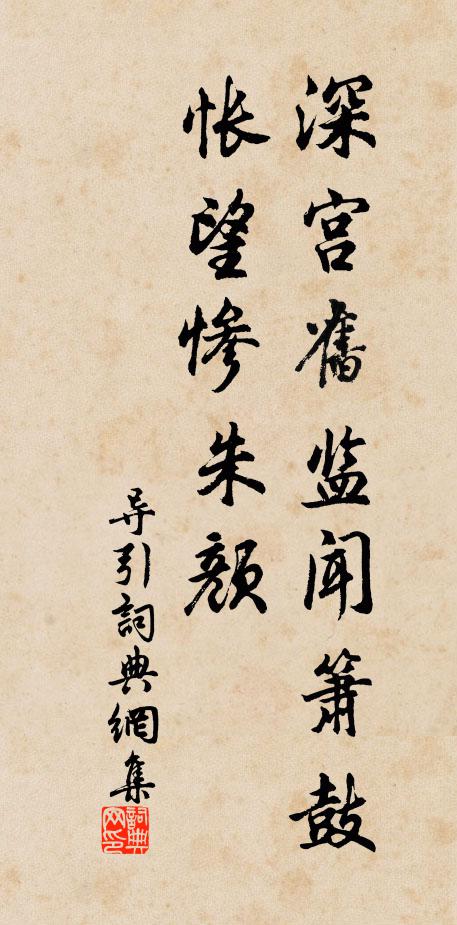 深宫舊监闻箫鼓
怅望惨朱颜
导引詞典網集
詞典网印